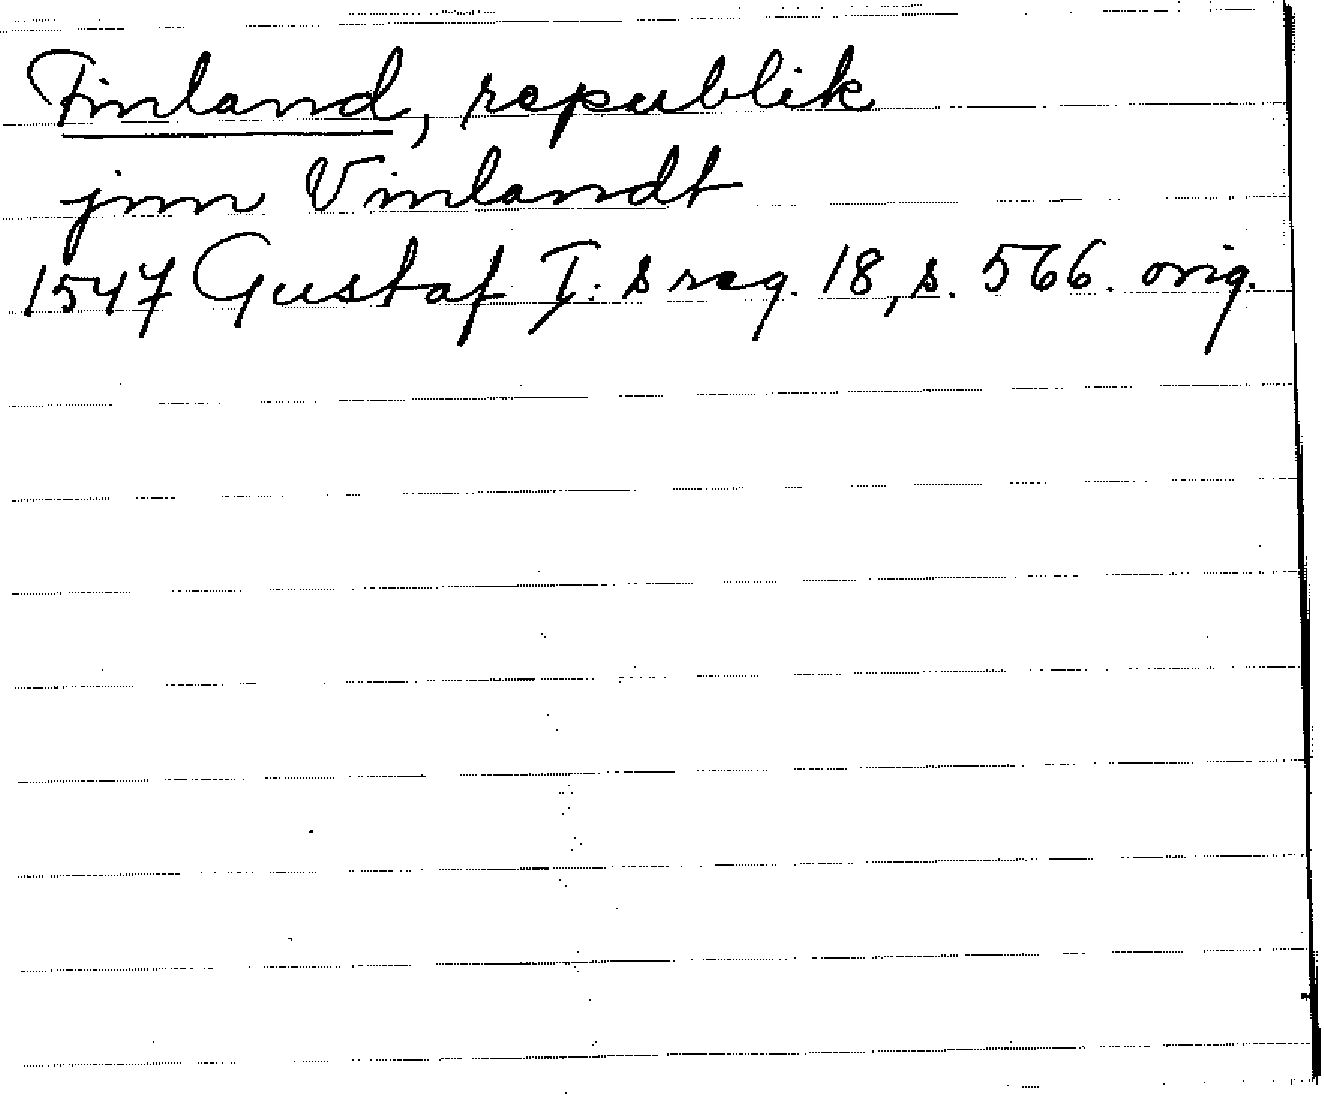 Finland, republik
jnn Vinlandt
1547 Gustaf I:s reg. 18, s. 566. orig.